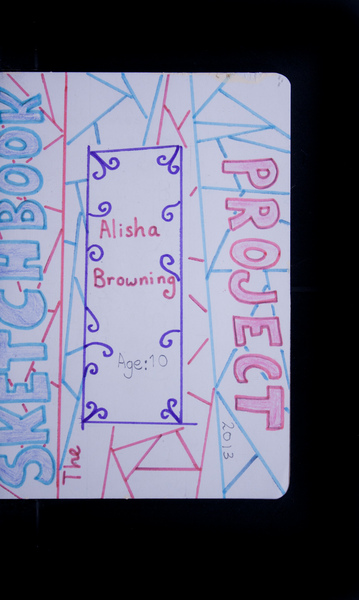 The
SKETCHBOOK
PROJECT
2013
Alisha
Browning
Age:10